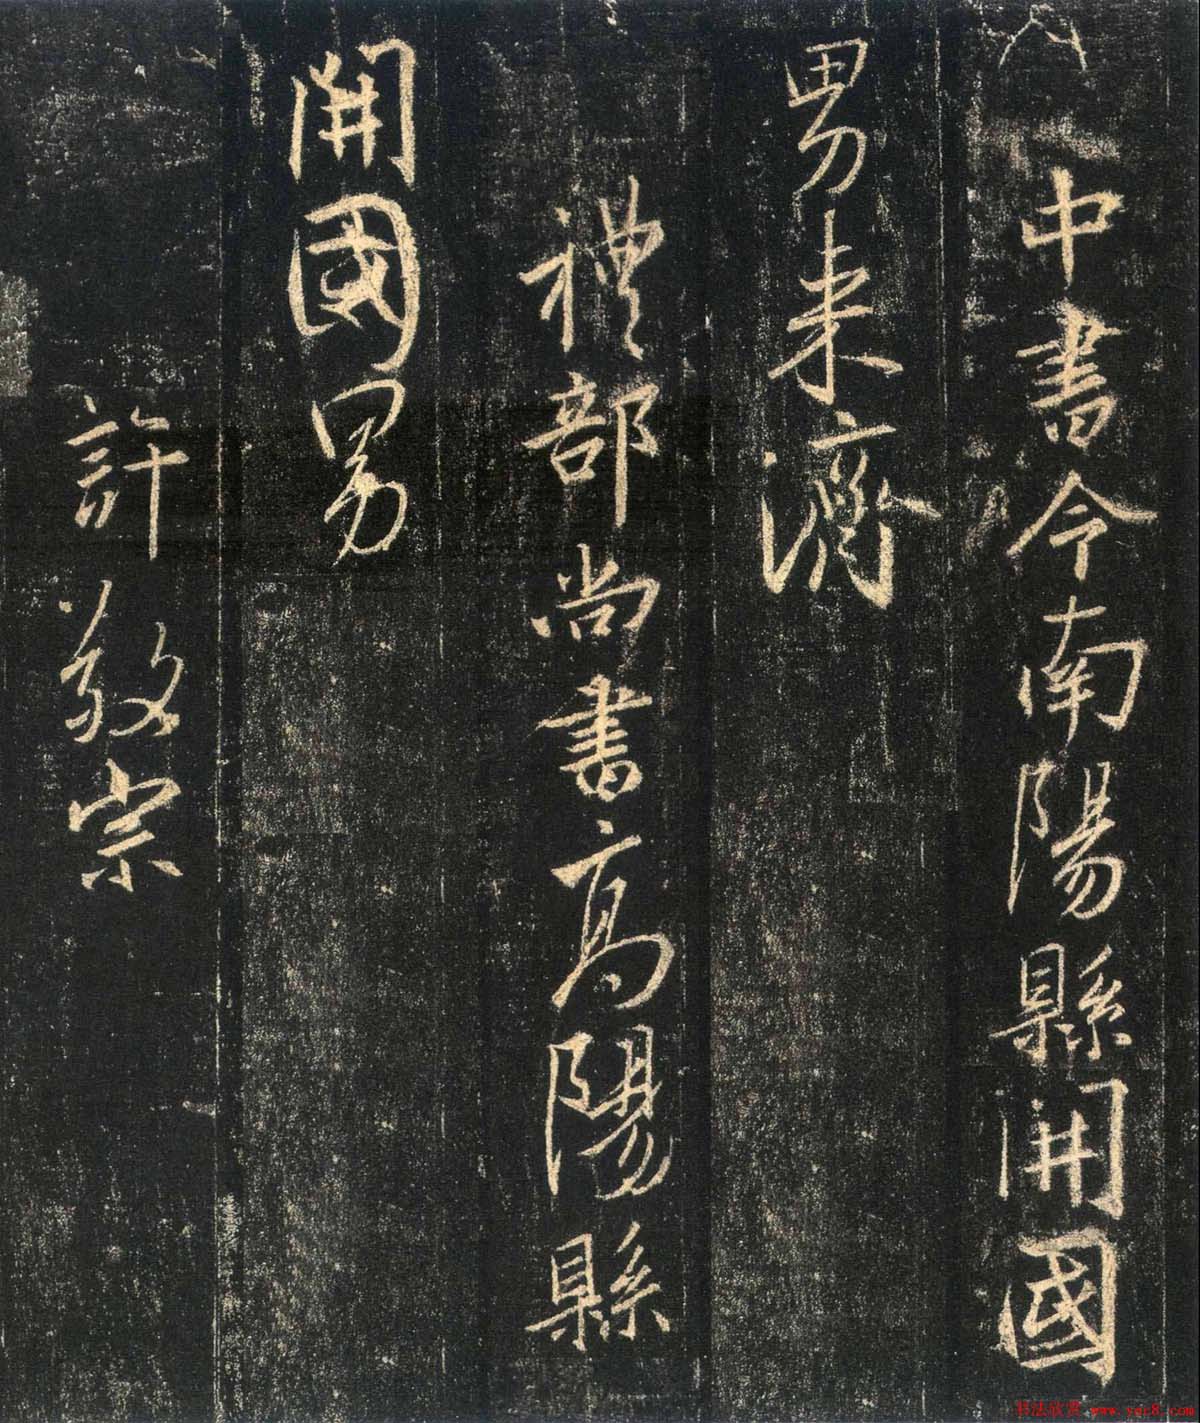 中書令南陽縣開國
男来濟
禮部尚書高陽縣
開國男
許敬宗
书法欣赏 www.yac8.com